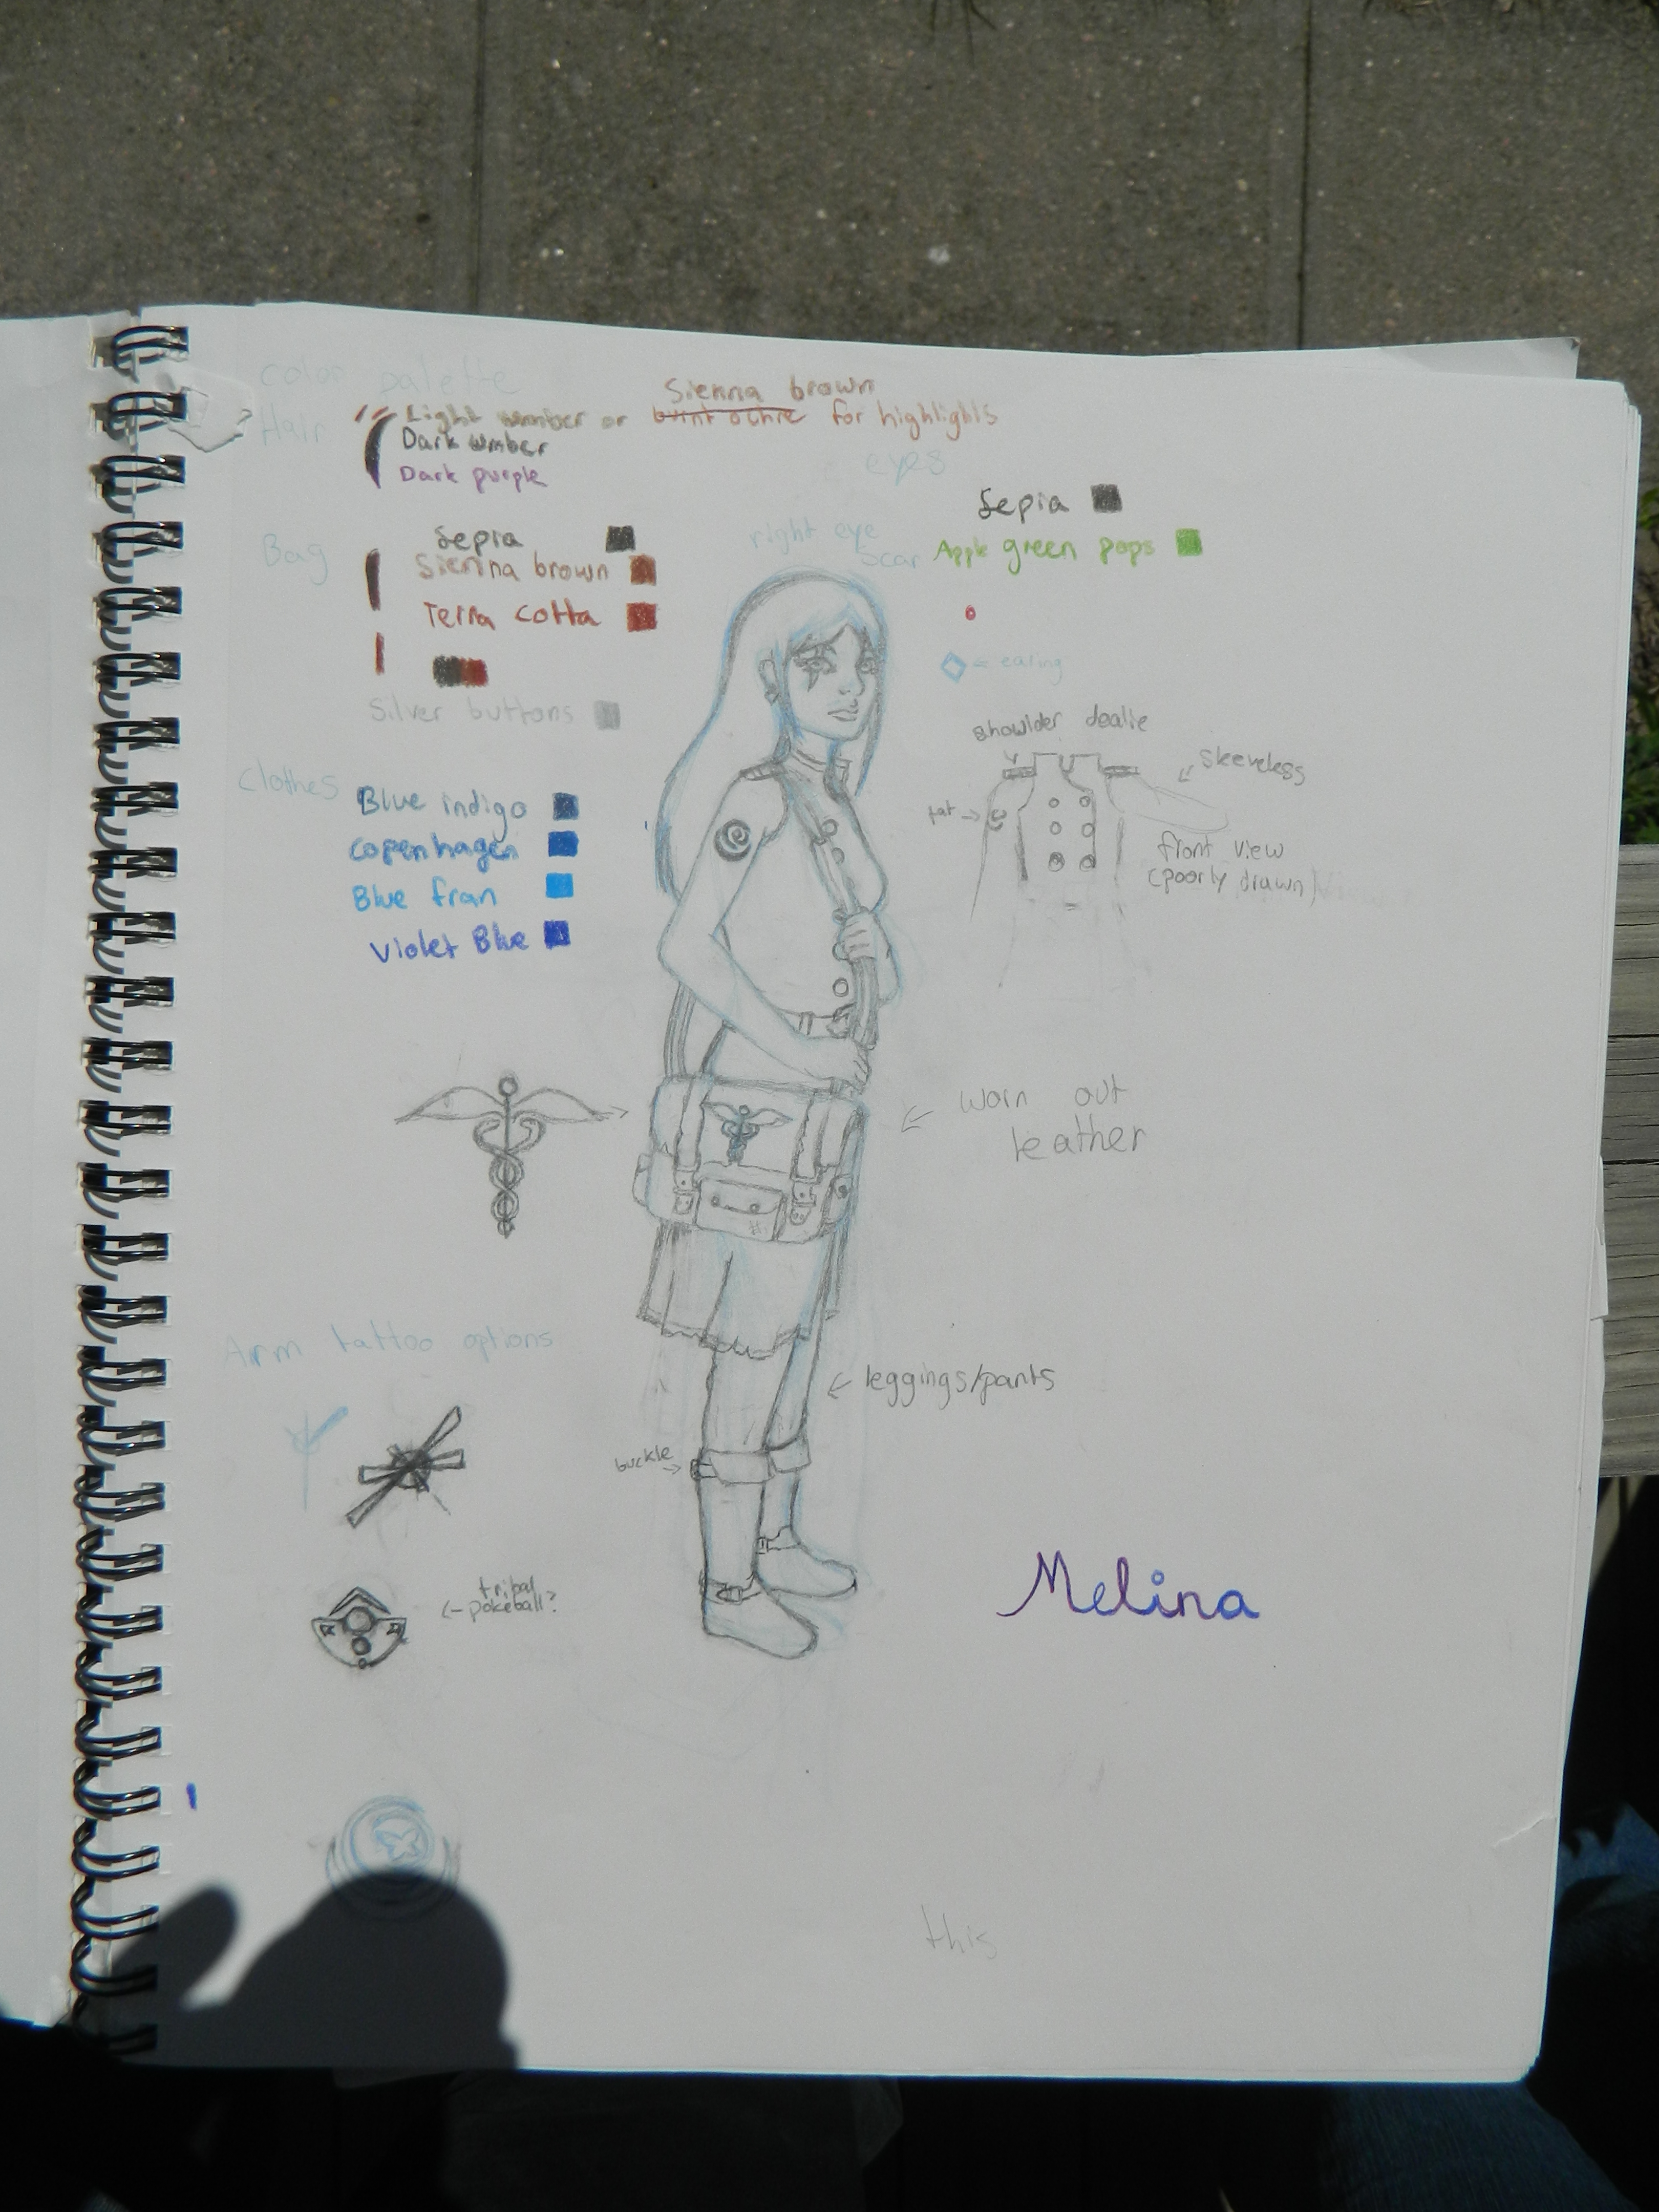 color palette
Hair
Light umber or burnt ochre Sienna brown for highlights
Dark umber
Dark purple
eyes
Sepia
Apple green pops
right eye
scar
Bag
Sepia
Sienna brown
Terra cotta
Silver buttons
← earing
Clothes
Blue indigo
Copenhagen
Blue fran
Violet Blue
showlder dealie
sleeveless
tat →
front view
(poorly drawn)
worn out
leather
Arm tattoo options
leggings/pants
buckle
tribal
pokeball?
Melina
this